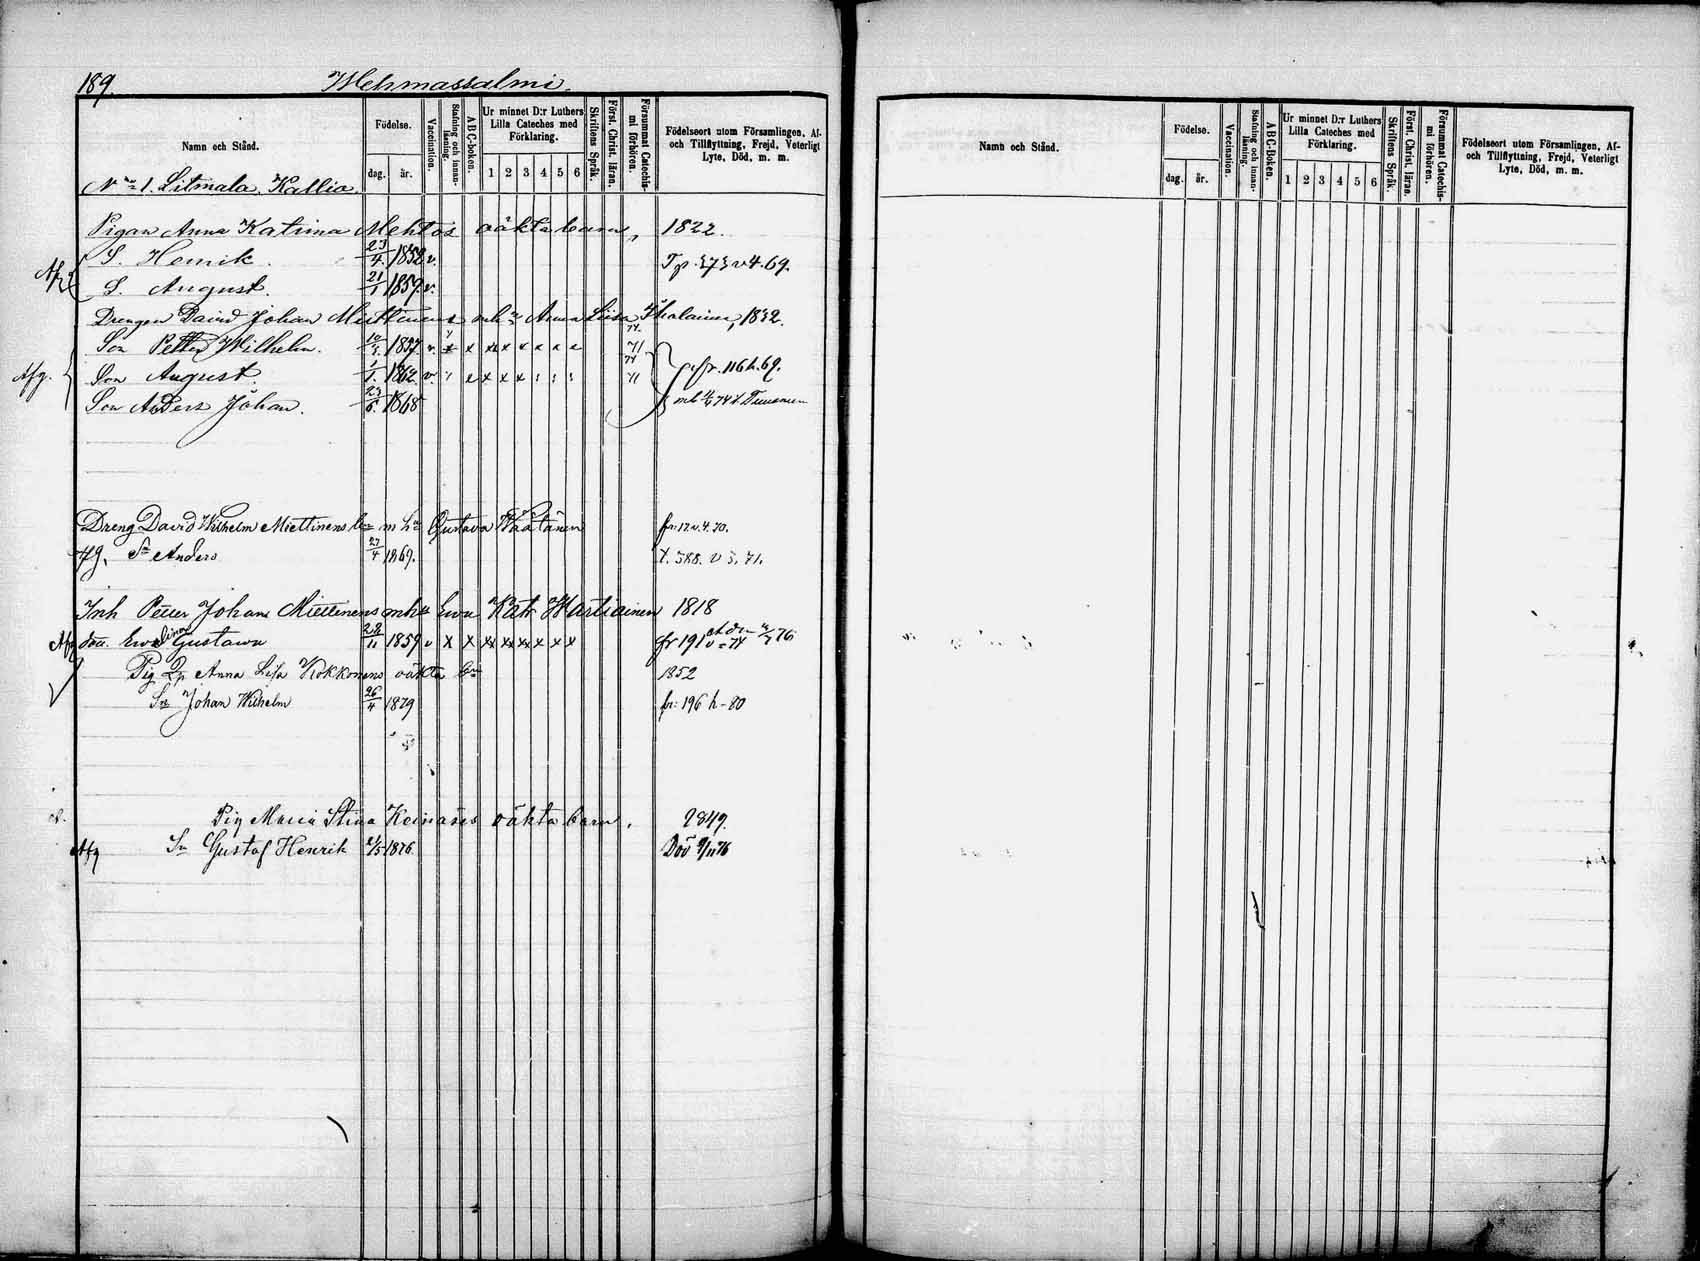 189. Wehmassalmi.
Namn och Stånd.
Födelse.
dag. år.
Vaccination.
Stafning och innan-läsning.
A B C-boken.
Ur minnet D:r Luthers Lilla Cateches med Förklaring.
1 2 3 4 5 6
Skriftens Språk.
Först. Christ. läran.
Försummat Catechis-mi förhören.
Födelseort utom Församlingen, Af- och Tillflyttning, Frejd, Veterligt Lyte, Död, m. m.
No 1. Litmala. Kallia
Pigan Anna Katrina Mehtos oäkta barn, 1822.
S. Henrik. 23/4 1852 v. Tp. 373 v 4. 69.
Afg S. August. 21/1 1859. v.
Drengen David Johan Miettinens mhu Anna Liisa Ihalainen, 1832.
Son Petter Wilhelm. 1857 v. x x x x x x x x 71
Afg. Son August. 1/1 1862. v. x x x x 71 fr. 116 h. 69.
Son Anders Johan. 23/6 1868
Dreng David Wilhelm Miettinens bn m hu Gustava Väätänen fr: 17. v. 4. 70.
Afg. Sn Anders 27/4 1869. t. 388. v 5. 71.
Inh Petter Johan Miettinens mhu Ewa Katr Martiainen 1818
Afg dot. Ewelina Gustawa 28/11 1859 v x x x x x x x x fr 191 v = 74 76
Pig Qp Anna Lisa Kokkonens oäkta bn 1852
Sn Johan Wilhelm 26/4 1879 fr: 196 h - 80
Pig Maria Stina Keinäses oäkta barn. 1849.
Afg Sn Gustaf Henrik 2/5 1876. Döv 9/11 76
Namn och Stånd.
Födelse.
dag. år.
Vaccination.
Stafning och innan-läsning.
A B C-Boken.
Ur minnet D:r Luthers Lilla Cateches med Förklaring.
1 2 3 4 5 6
Skriftens Språk.
Först. Christ. läran.
Försummat Catechis-mi förhören.
Födelseort utom Församlingen, Af- och Tillflyttning, Frejd, Veterligt Lyte, Död, m. m.